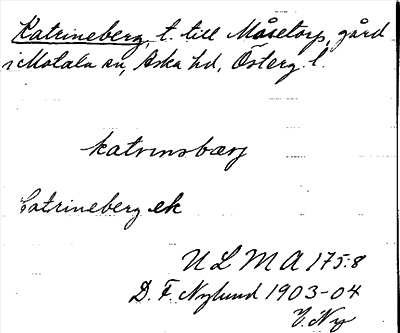 Katrineberg, t. till Måsetorp, gård
i Motala sn, Aska hd, Österg. l.
katrinsbærj
Catrineberg ek
ULMA 175:8
D. F. Nylund 1903-04
E. Ny